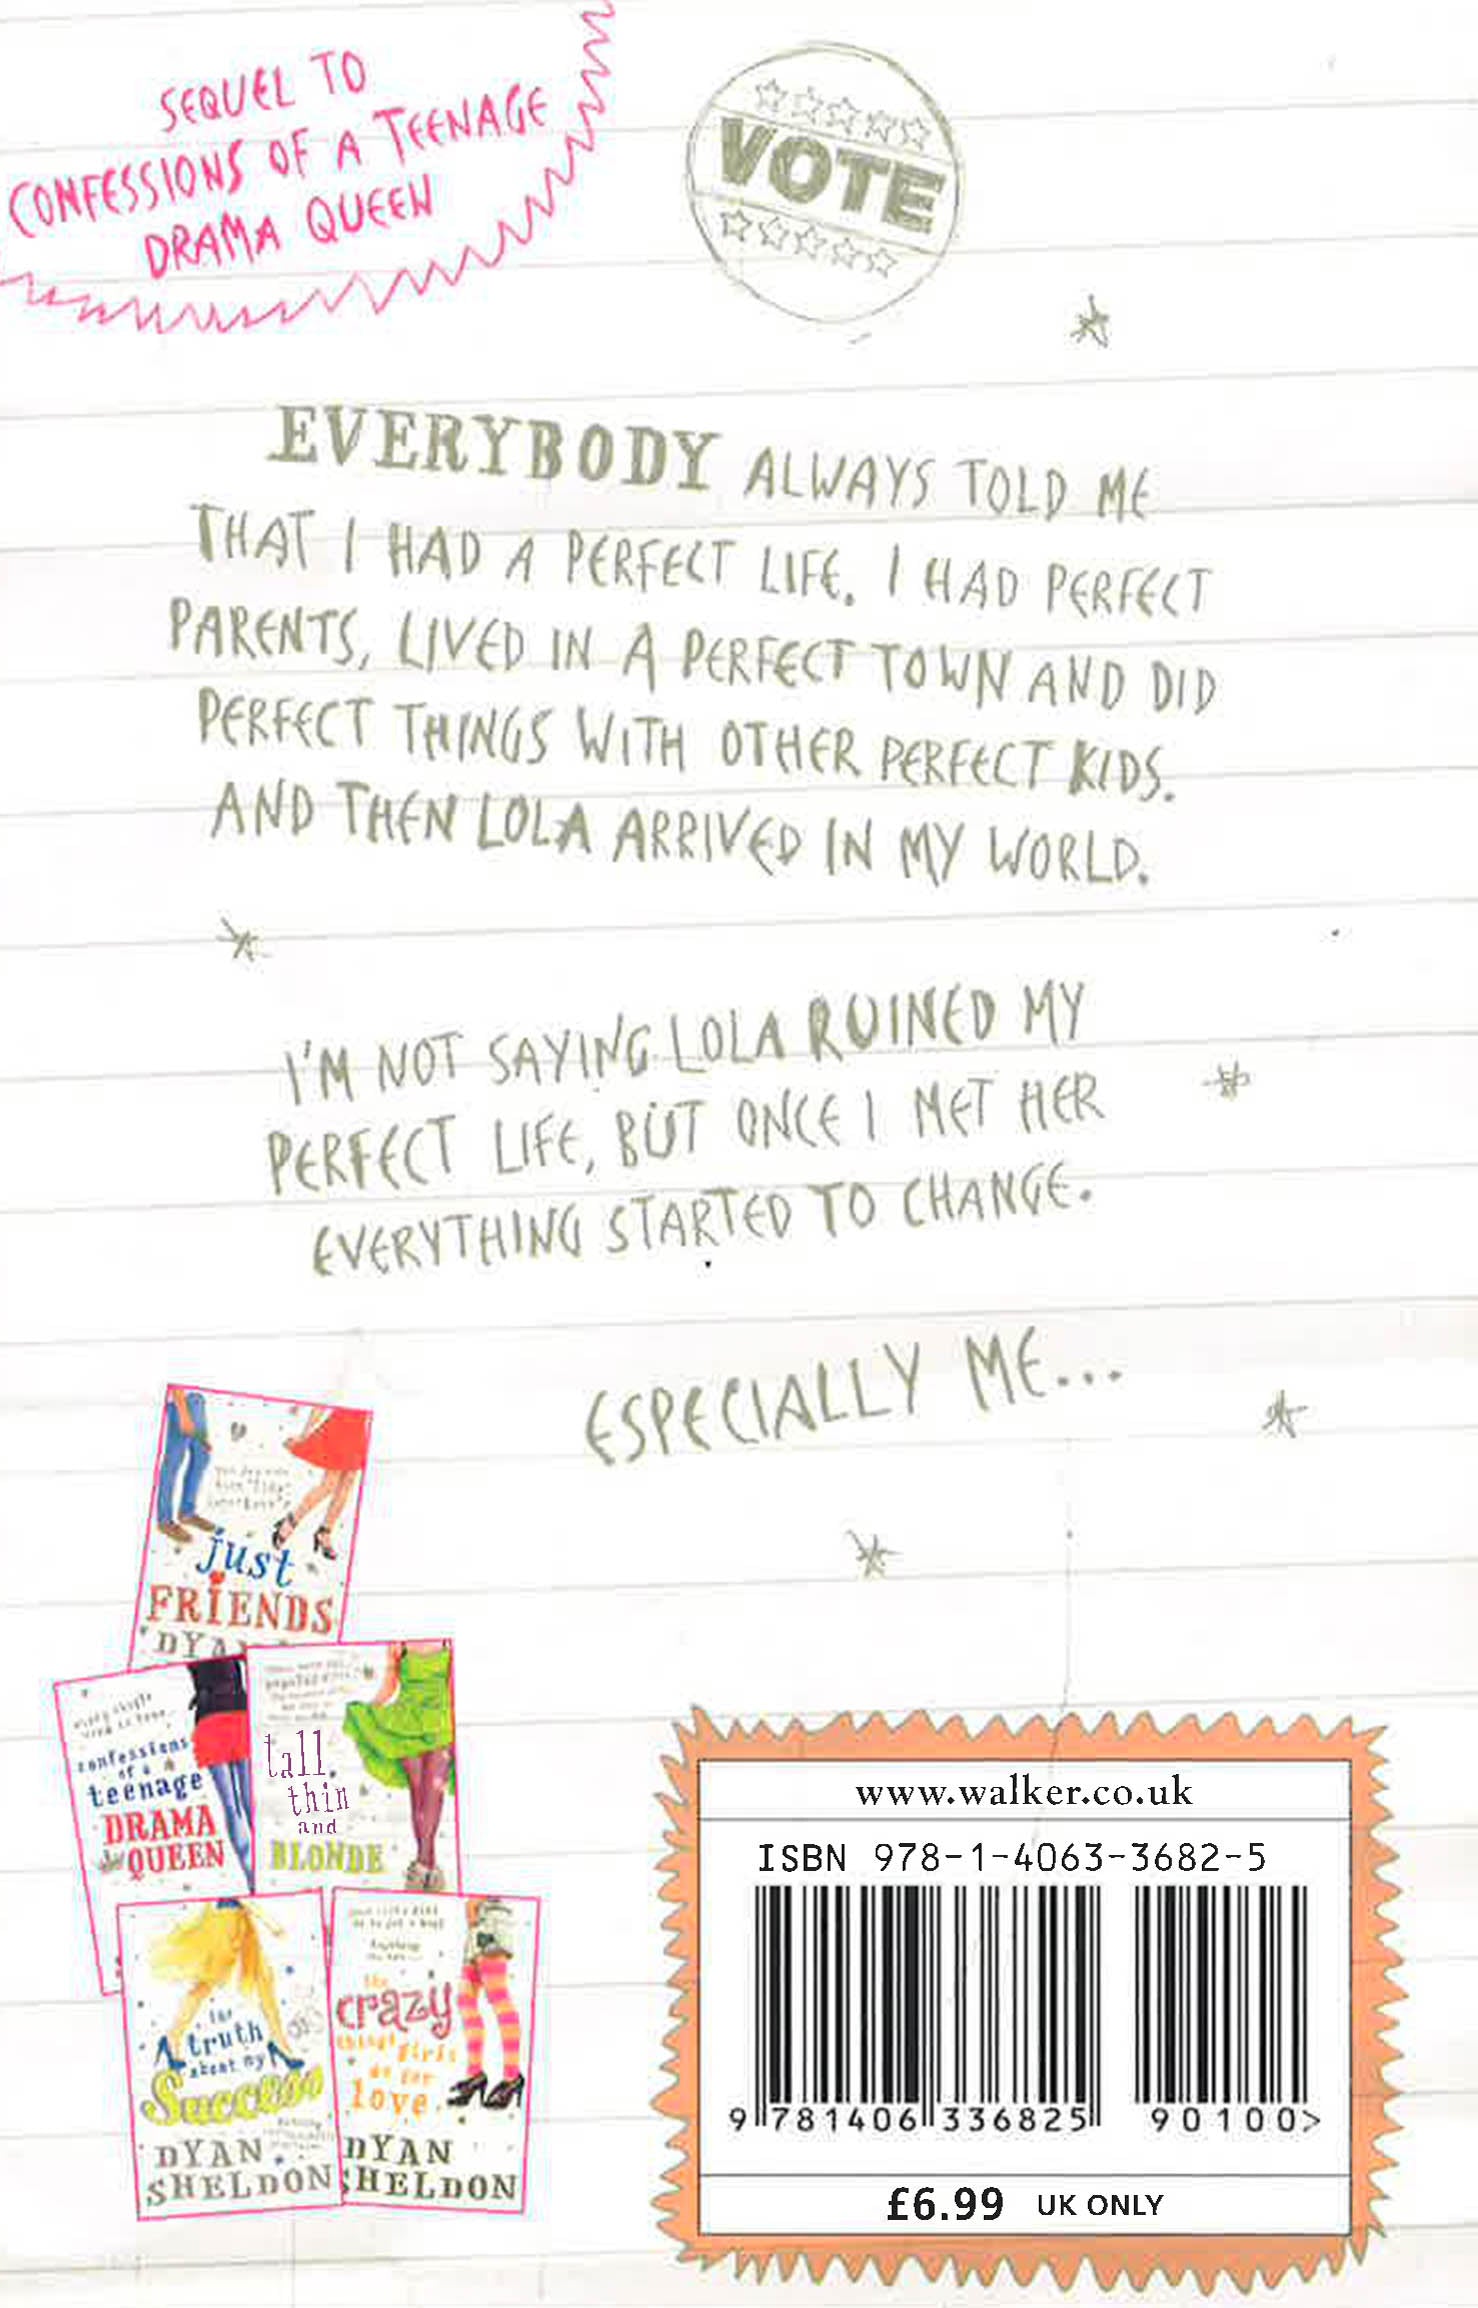 SEQUEL TO
CONFESSIONS OF A TEENAGE
DRAMA QUEEN
VOTE
EVERYBODY ALWAYS TOLD ME
THAT I HAD A PERFECT LIFE. I HAD PERFECT
PARENTS, LIVED IN A PERFECT TOWN AND DID
PERFECT THINGS WITH OTHER PERFECT KIDS.
AND THEN LOLA ARRIVED IN MY WORLD.
I'M NOT SAYING LOLA RUINED MY
PERFECT LIFE, BUT ONCE I MET HER
EVERYTHING STARTED TO CHANGE.
ESPECIALLY ME...
just
FRIENDS
DYA
confessions
of a
teenage
DRAMA
QUEEN
tall,
thin
and
BLONDE
the
truth
about my
Success
DYAN
SHELDON
the
crazy
things girls
do for
love
DYAN
SHELDON
www.walker.co.uk
ISBN 978-1-4063-3682-5
9 781406 336825
90100>
£6.99 UK ONLY